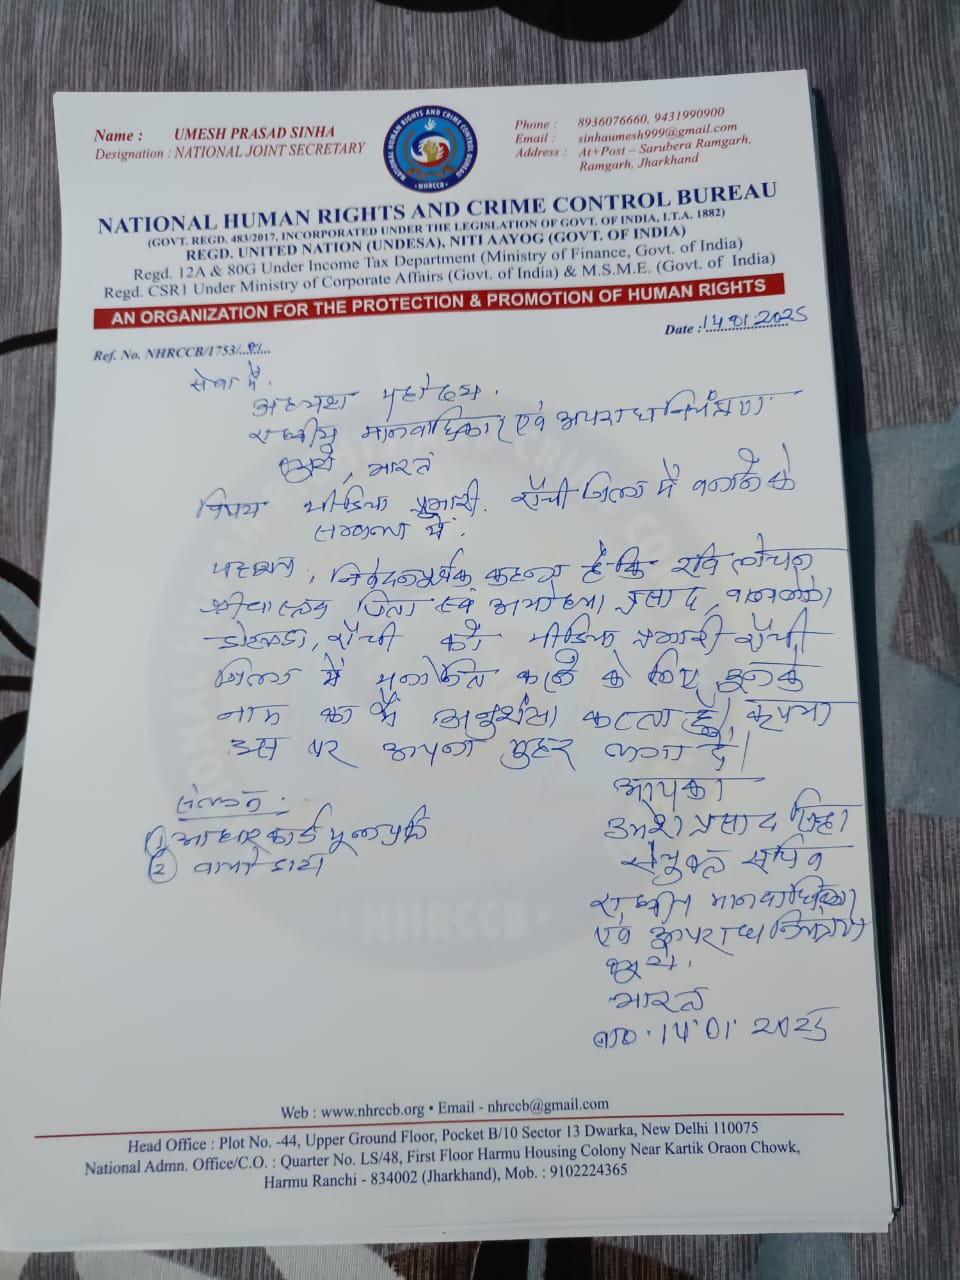 Name : UMESH PRASAD SINHA
Designation : NATIONAL JOINT SECRETARY
NATIONAL HUMAN RIGHTS AND CRIME CONTROL BUREAU
• NHRCCB •
Phone : 8936076660, 9431990900
Email : sinhaumesh999@gmail.com
Address : At+Post – Sarubera Ramgarh,
Ramgarh, Jharkhand
NATIONAL HUMAN RIGHTS AND CRIME CONTROL BUREAU
(GOVT. REGD. 483/2017, INCORPORATED UNDER THE LEGISLATION OF GOVT. OF INDIA, I.T.A. 1882)
REGD. UNITED NATION (UNDESA), NITI AAYOG (GOVT. OF INDIA)
Regd. 12A & 80G Under Income Tax Department (Ministry of Finance, Govt. of India)
Regd. CSR1 Under Ministry of Corporate Affairs (Govt. of India) & M.S.M.E. (Govt. of India)
AN ORGANIZATION FOR THE PROTECTION & PROMOTION OF HUMAN RIGHTS
Date : 14.01.2025
Ref. No. NHRCCB/1753/
सेवा में,
अध्यक्ष महोदय,
राष्ट्रीय मानवाधिकार एवं अपराध नियंत्रण
ब्यूरो, भारत
विषय मीडिया प्रभारी राँची जिला में बनाने के
सम्बन्ध में.
महाशय, निवेदनपूर्वक कहना है कि रवि लोचन
पिता स्व अयोध्या प्रसाद,
राँची को मीडिया प्रभारी राँची
जिला में मनोनित करने के लिए इनके
नाम का मैं अनुशंसा करता हूँ, कृपया
इस पर अपना मुहर लगा दें।
आपका
संलग्न :
(1) आधार कार्ड
(2)
उमेश प्रसाद सिन्हा
संयुक्त सचिव
राष्ट्रीय मानवाधिकार
एवं अपराध नियंत्रण
ब्यूरो.
भारत
ता० 14.01.2025
• NHRCCB •
Web : www.nhrccb.org • Email - nhrccb@gmail.com
Head Office : Plot No. -44, Upper Ground Floor, Pocket B/10 Sector 13 Dwarka, New Delhi 110075
National Admn. Office/C.O. : Quarter No. LS/48, First Floor Harmu Housing Colony Near Kartik Oraon Chowk,
Harmu Ranchi - 834002 (Jharkhand), Mob. : 9102224365